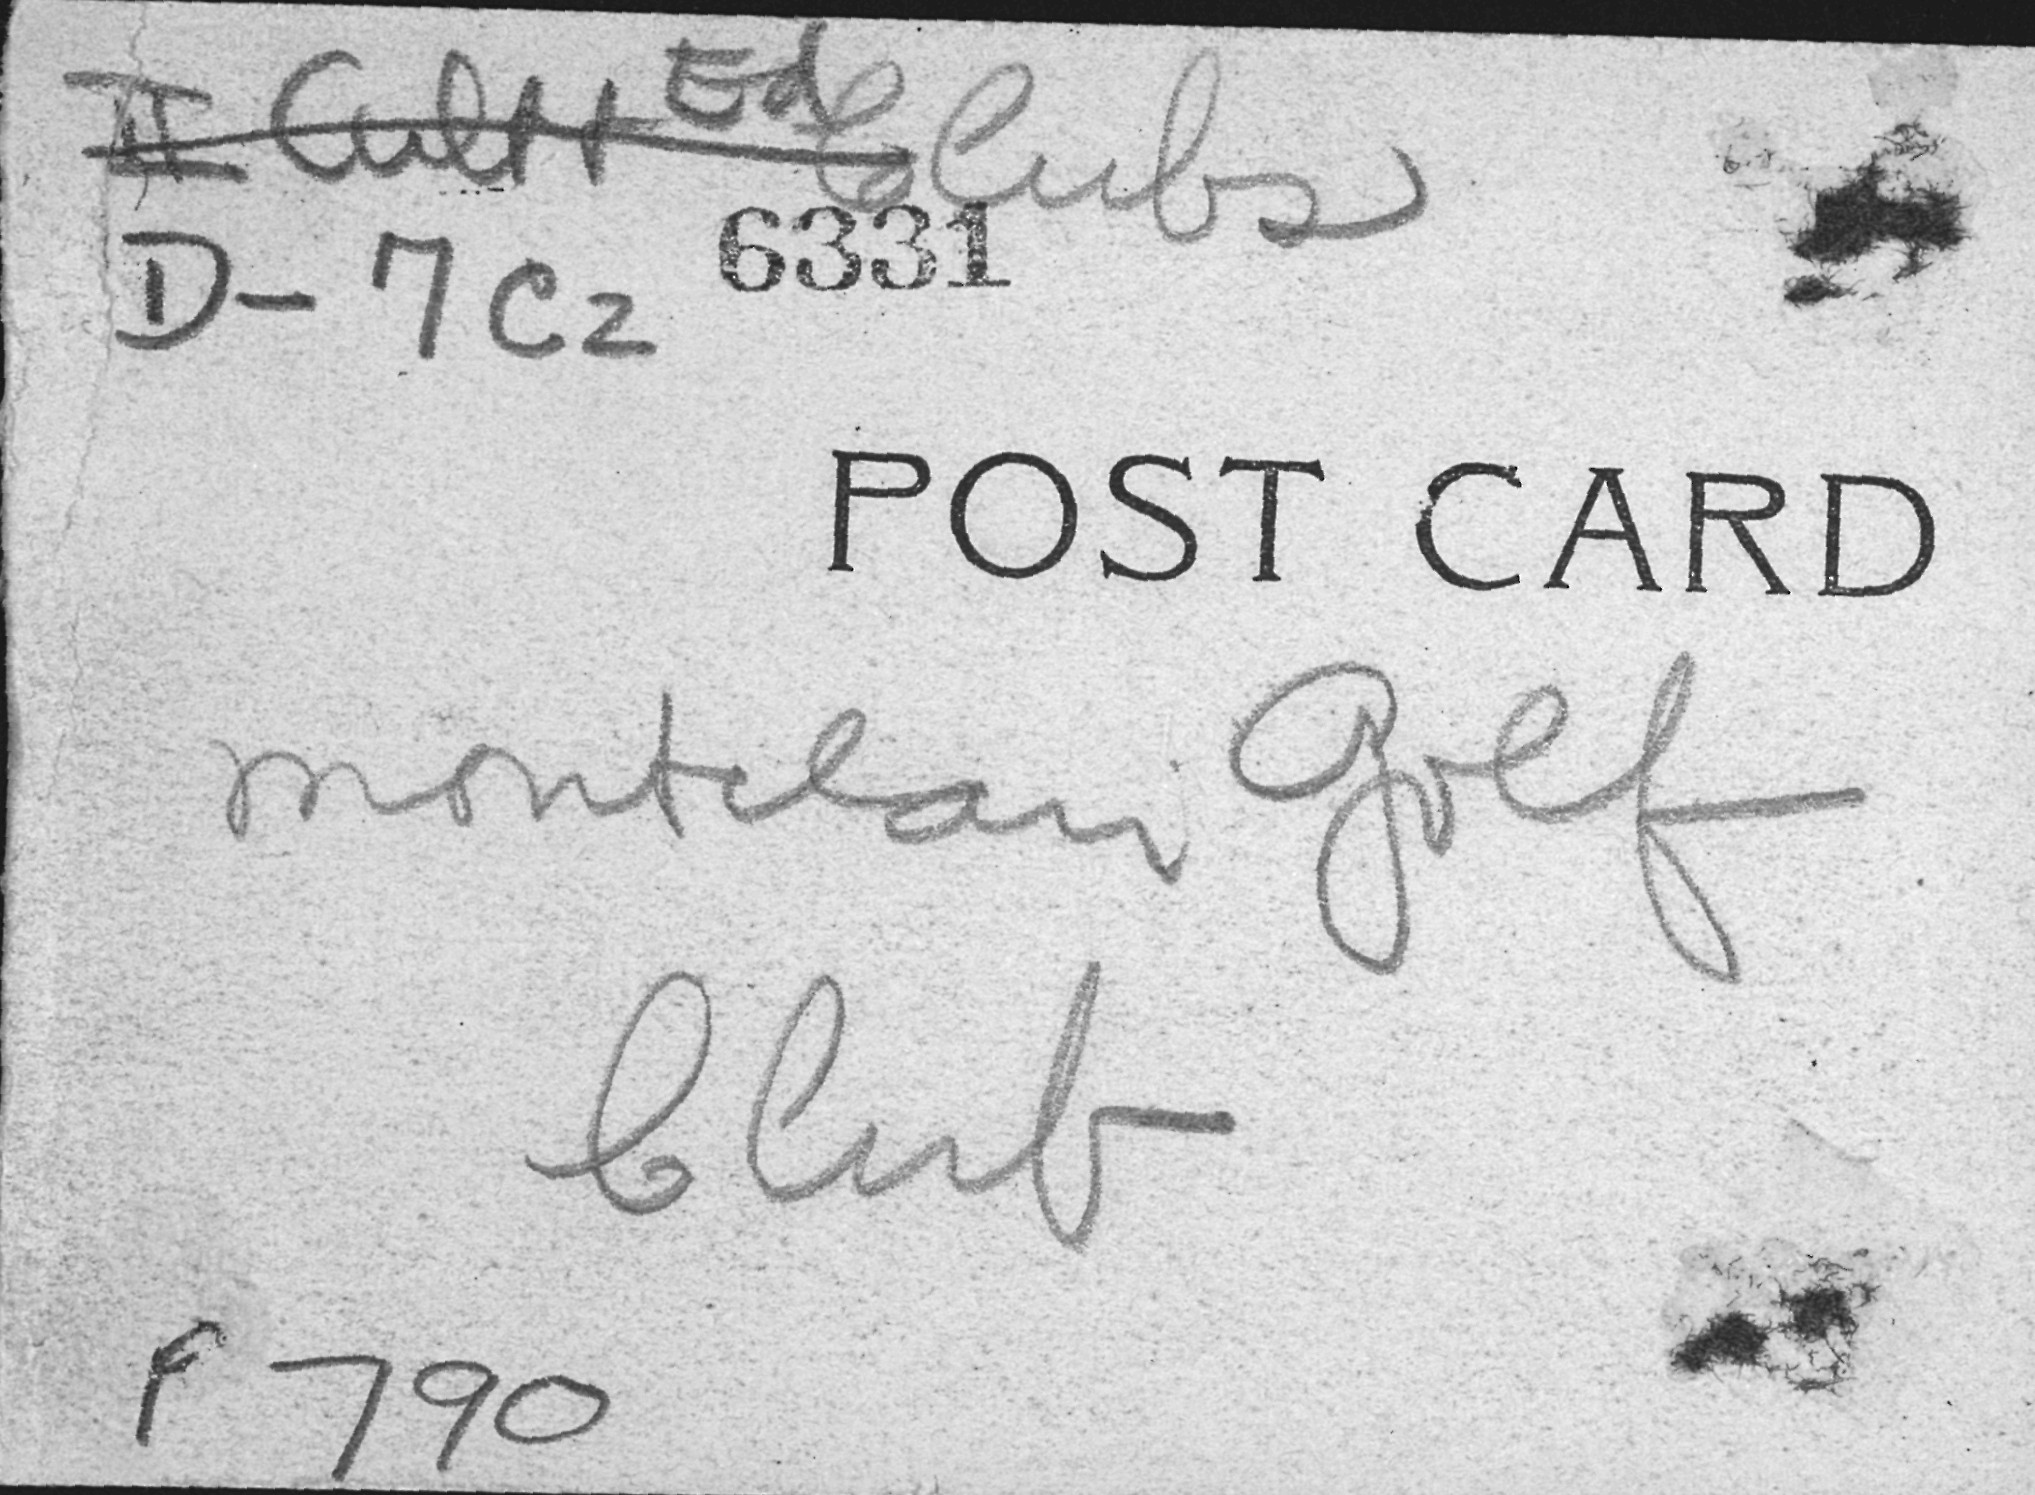 II Cult + Ed Clubs
D-7c2 6331
POST CARD
Montclair Golf
Club
P 790